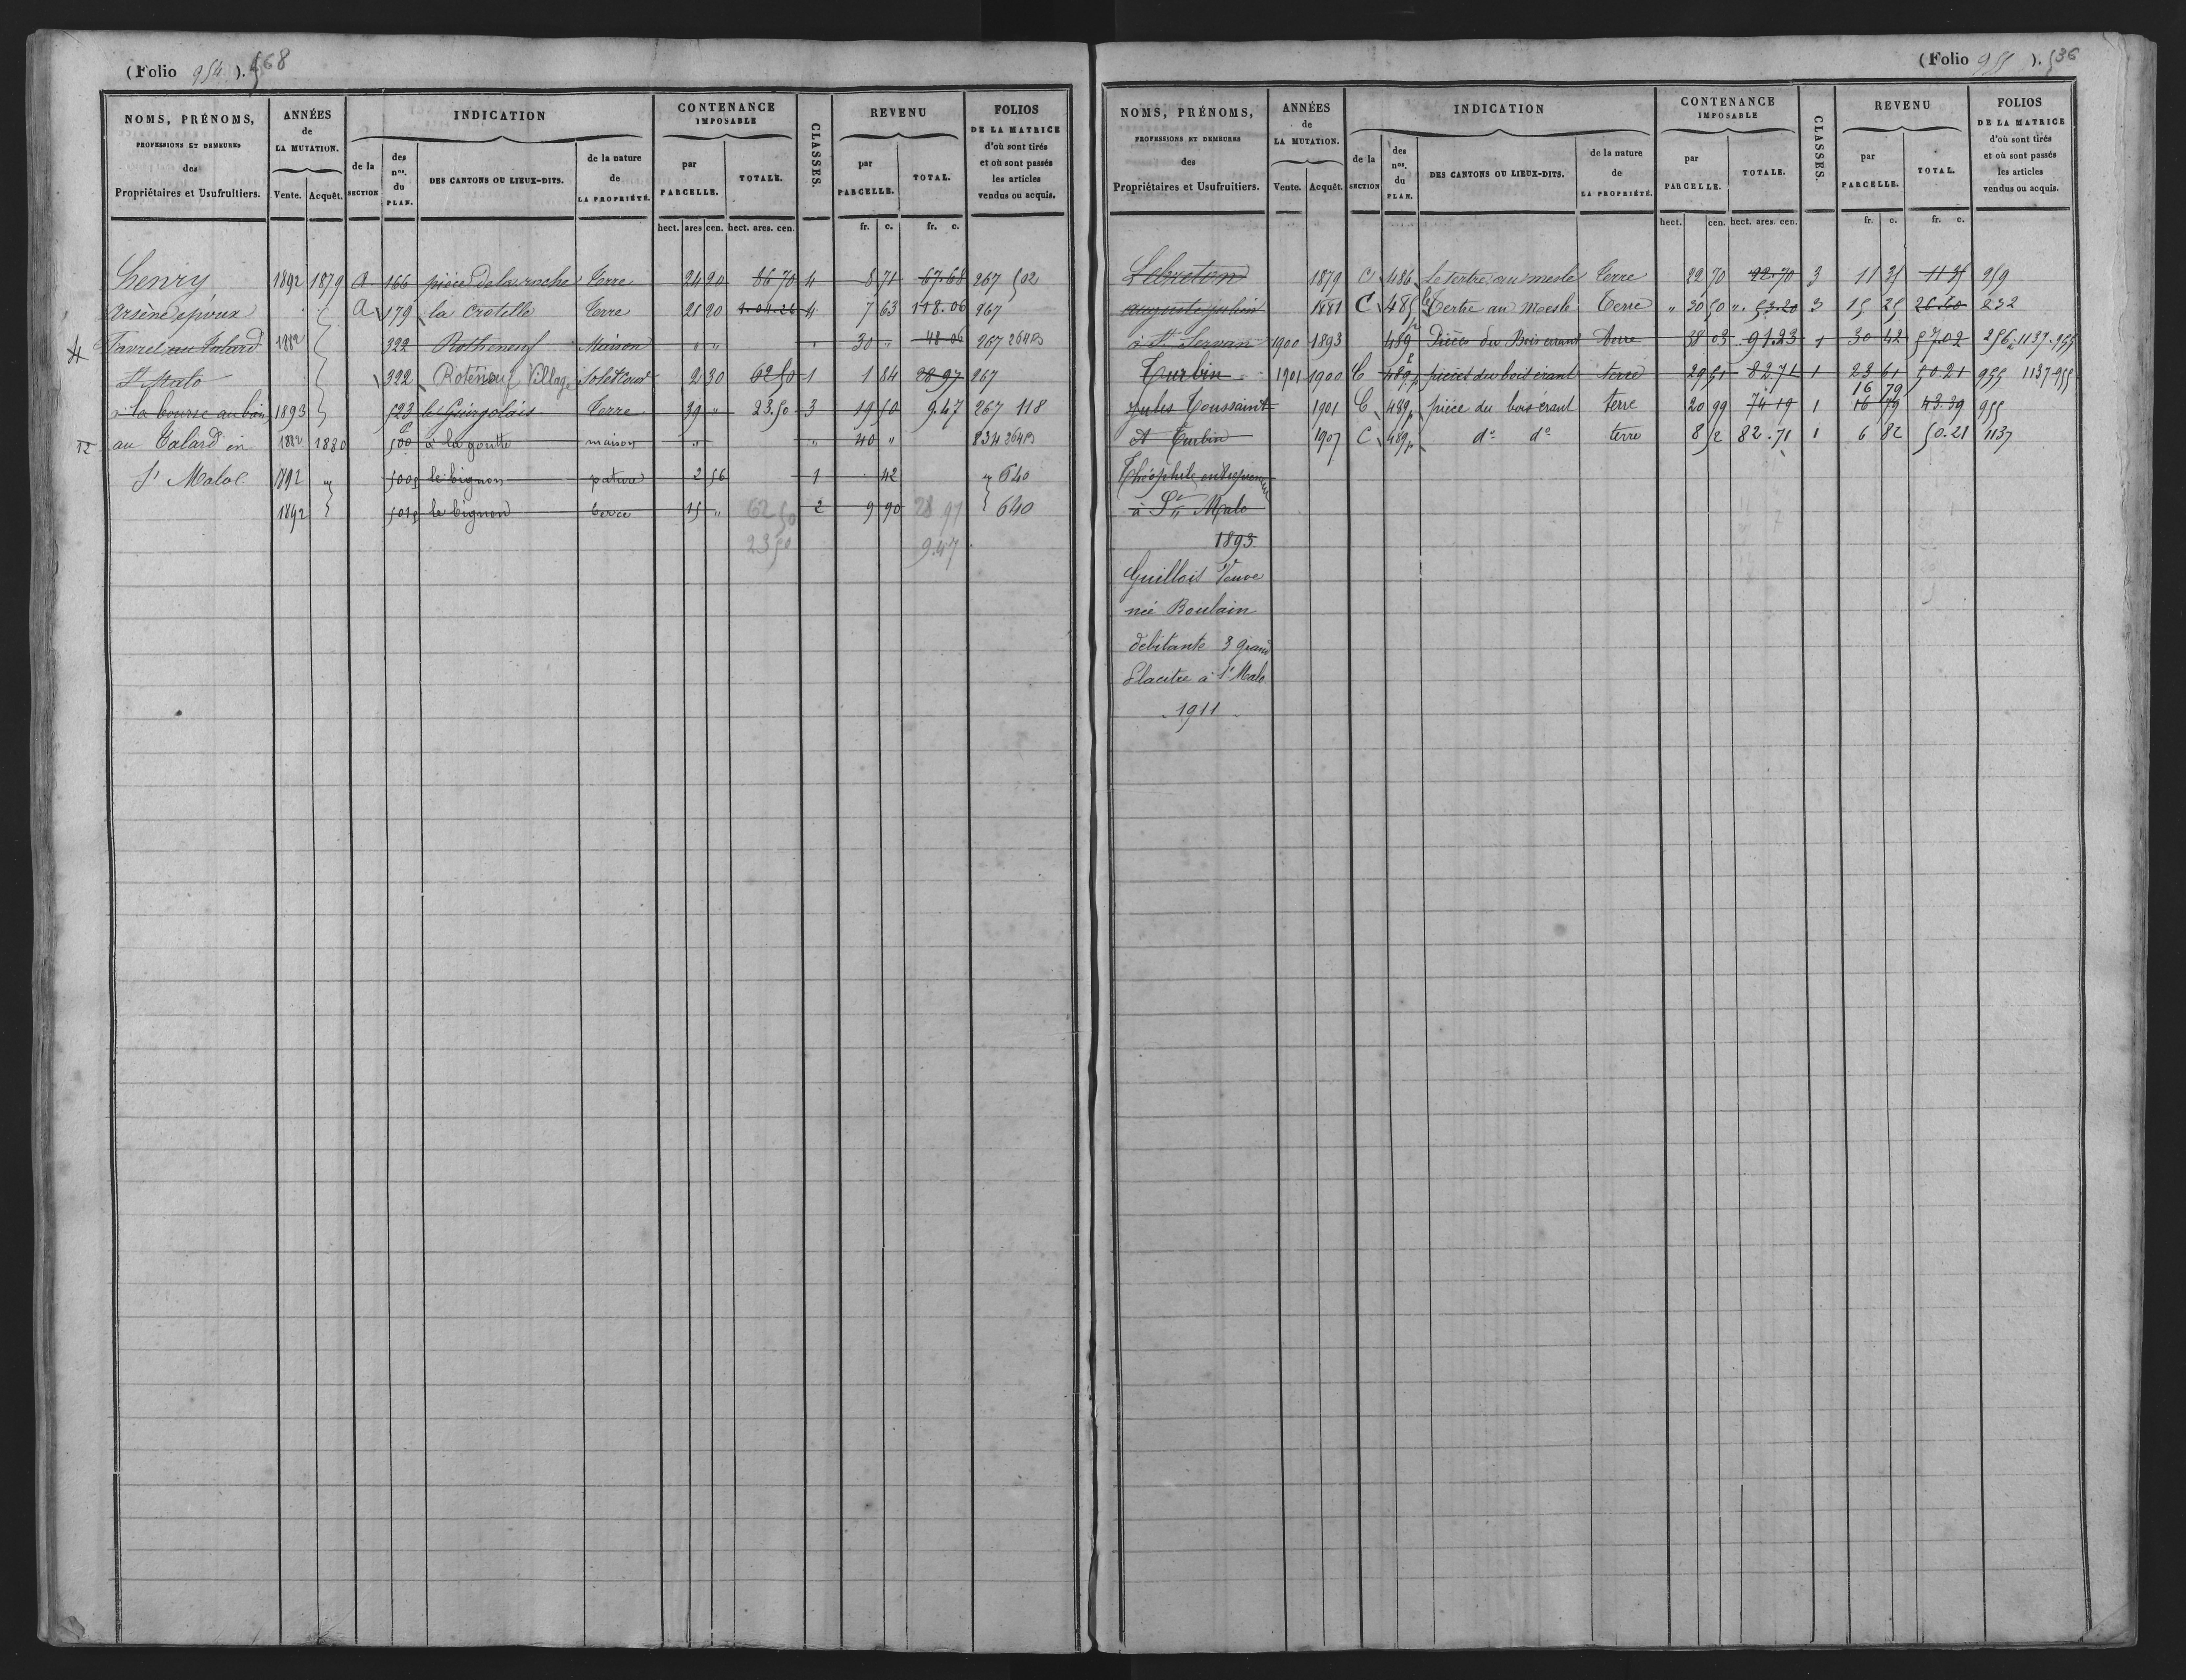 (Folio 954). 568
NOMS, PRÉNOMS, PROFESSIONS ET DEMEURES des Propriétaires et Usufruitiers.
ANNÉES de LA MUTATION. Vente. Acquêt.
INDICATION
de la SECTION
des nos. du PLAN.
DES CANTONS OU LIEUX-DITS.
de la nature de LA PROPRIÉTÉ.
CONTENANCE IMPOSABLE
par PARCELLE. TOTALE.
CLASSES.
REVENU
par PARCELLE. TOTAL.
FOLIOS DE LA MATRICE d'où sont tirés et où sont passés les articles vendus ou acquis.
hect. ares cen. hect. ares. cen. fr. c. fr. c.
henry 1892 1879 A 166 pièce de la roche Terre 24 20 86 70 4 8 71 67.68 267 502
Arsène époux A 179 la crotelle Terre 21 20 1.04.26 4 7 63 118.06 267
Favrel au Talard 1882 322 Rotheneuf Maison " " " 30 " 48 06 267 264 B
St Malo 322 Roteneuf Village Sol et Cour 2 30 62 50 1 1 84 28 97 267
à la bourse au bois 1893 523 le Guirgolais Terre 39 " 23.50 3 19 50 9.47 267 118
au Talard en 1882 1880 500 p à la goutte maison " " 40 " 834 264 B
St Malo 1892 " 500 p le bignon pature 2 56 1 42 " 640
1892 501 p le bignond terre 15 " 62 50 2 9 90 28 97 640
23 50 9.47
(Folio 955). 536
NOMS, PRÉNOMS, PROFESSIONS ET DEMEURES des Propriétaires et Usufruitiers.
ANNÉES de LA MUTATION. Vente. Acquêt.
INDICATION
de la SECTION
des nos. du PLAN.
DES CANTONS OU LIEUX-DITS.
de la nature de LA PROPRIÉTÉ.
CONTENANCE IMPOSABLE
par PARCELLE. TOTALE.
CLASSES.
REVENU
par PARCELLE. TOTAL.
FOLIOS DE LA MATRICE d'où sont tirés et où sont passés les articles vendus ou acquis.
hect. cen. hect. ares. cen. fr. c. fr. c.
Lebreton 1879 C 486 Le tertre au mesle Terre 22 70 22.70 3 11 35 11 35 959
auguste julien 1881 C 485 le Tertre au Mesle Terre " 30 50 ". 53.20 3 15 25 26.60 232
à St Servan 1900 1893 489 p Pièce du Bois érant Terre 38 03 91.23 1 30 42 57.02 256. 1137. 955
Turbin 1901 1900 C 489 p pièce du bois érant terre 29 51 82 71 1 23 61 50.21 955 1137-955
16 79
Jules Toussaint 1901 C 489 p pièce du bois érant terre 20 99 74 19 1 16 79 43.39 955
et Turbin 1907 C 489 p do do terre 8 52 82.71 1 6 82 50.21 1137
Théophile entrepreneur
à St Malo
1893
Guillois Veuve
née Boulain
débitante 3 Grand
Placitre à St Malo
1911